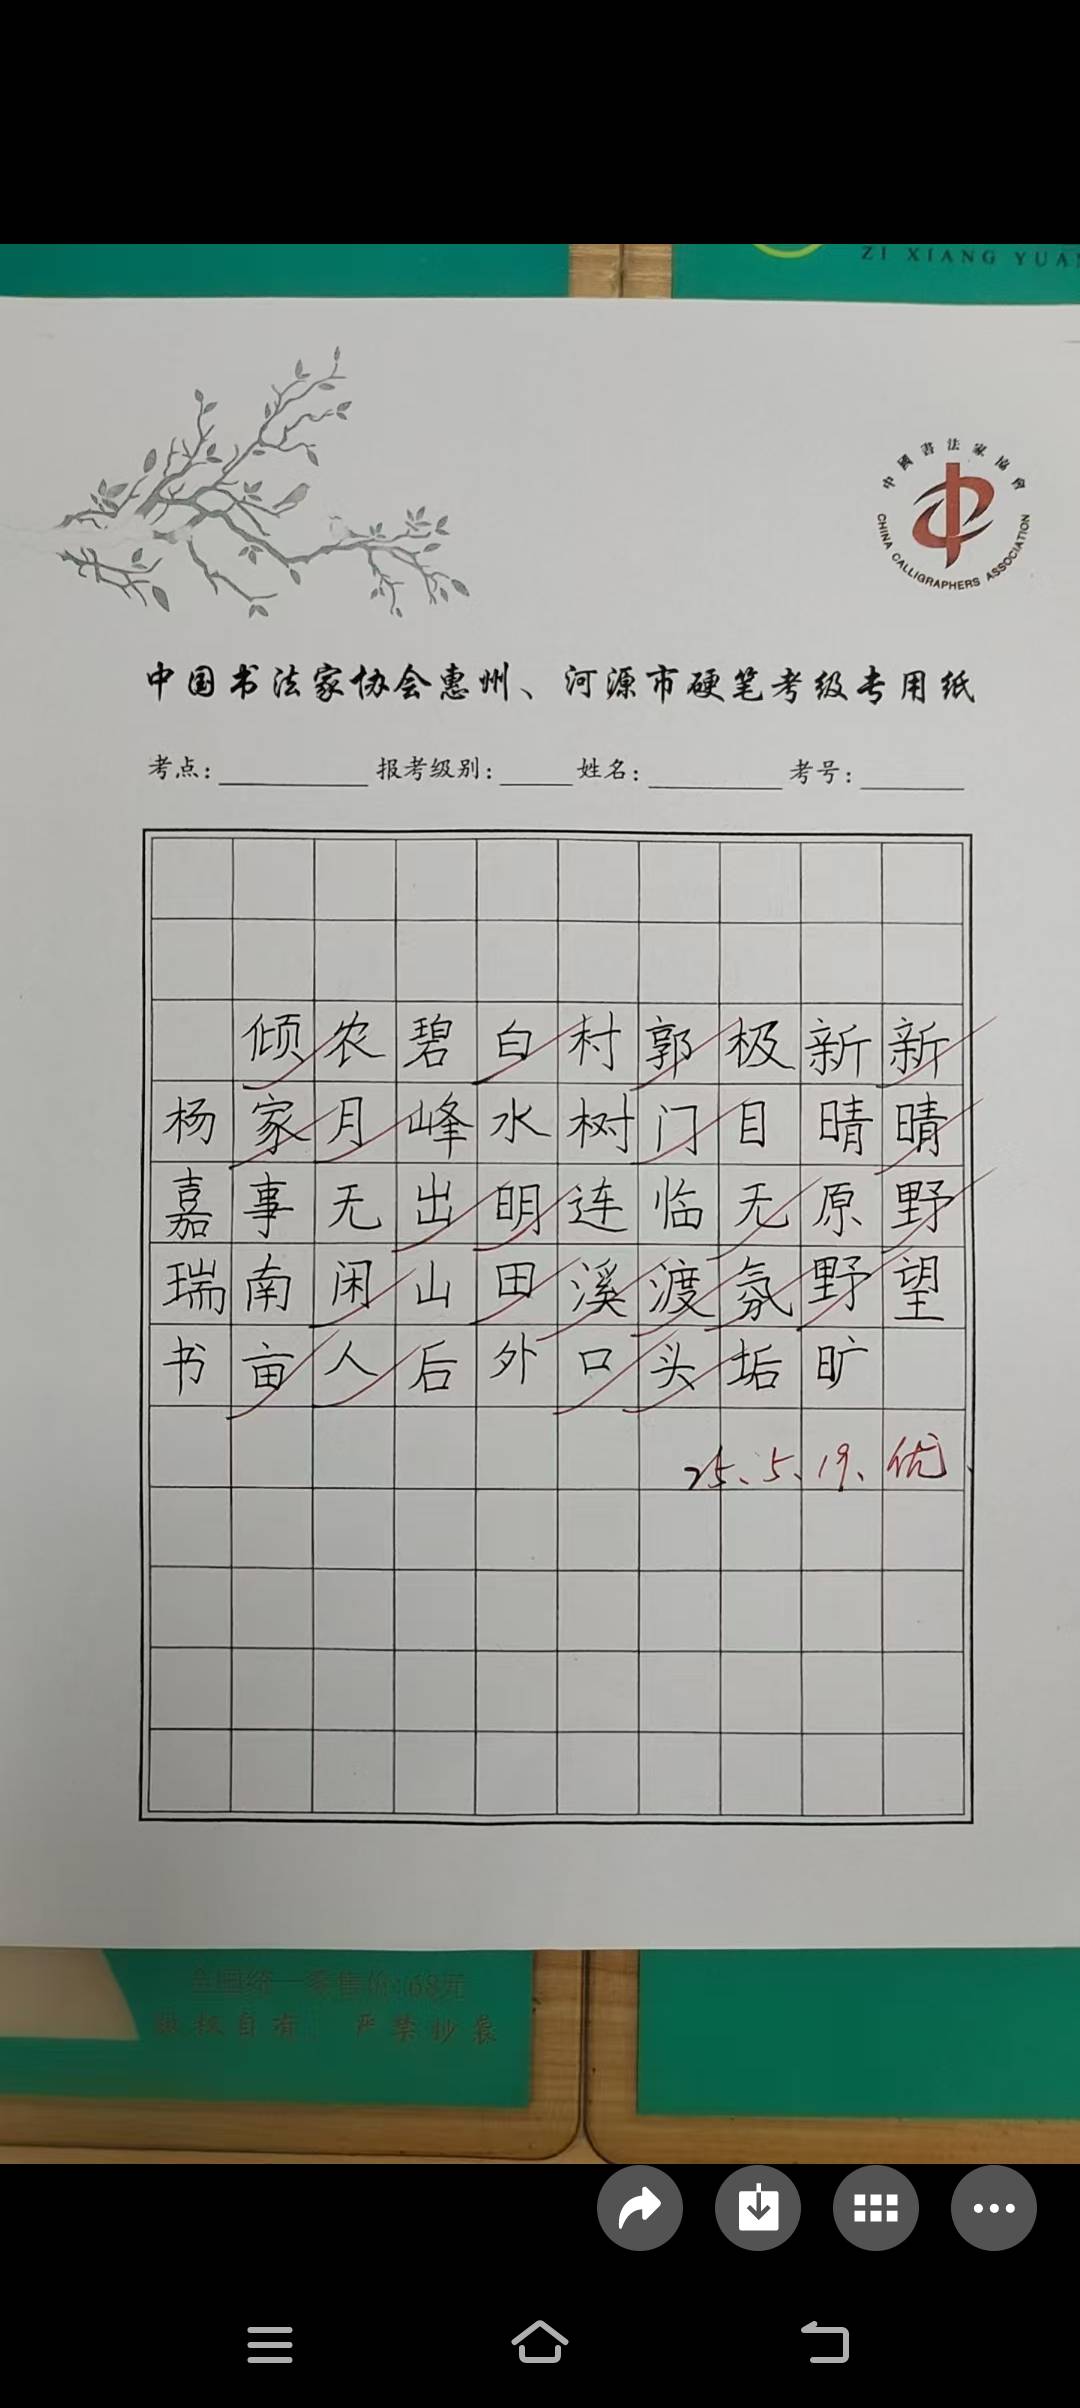 ZI XIANG YUAN
中國書法家協會
CHINA CALLIGRAPHERS ASSOCIATION
中国书法家协会惠州、河源市硬笔考级专用纸
考点: 报考级别: 姓名: 考号:
新晴野望
新晴原野旷
极目无氛垢
郭门临渡头
村树连溪口
白水明田外
碧峰出山后
农月无闲人
倾家事南亩
杨嘉瑞书
25.5.19.优
全国统一零售价:68元
版权自有 严禁抄袭